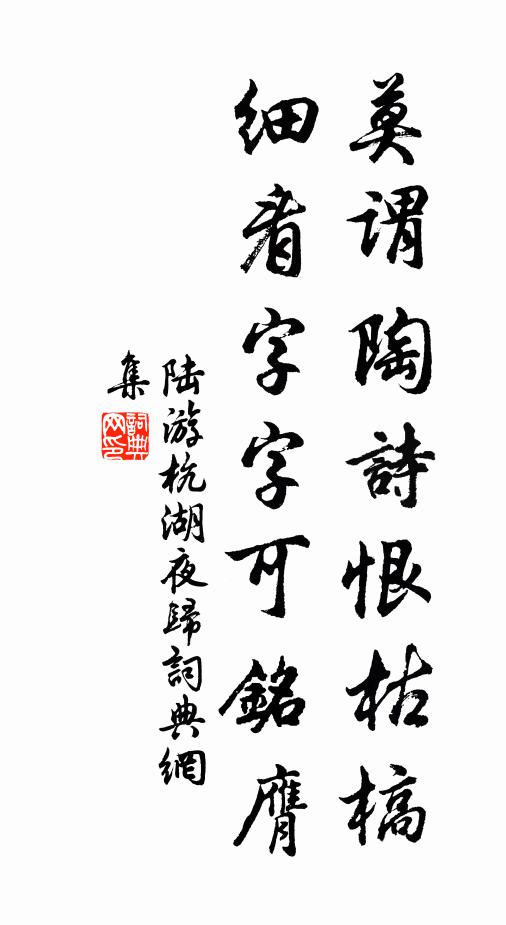 莫謂陶詩恨枯槁
細看字字可銘膺
陆游杭湖夜歸詞典網
集
詞典网印